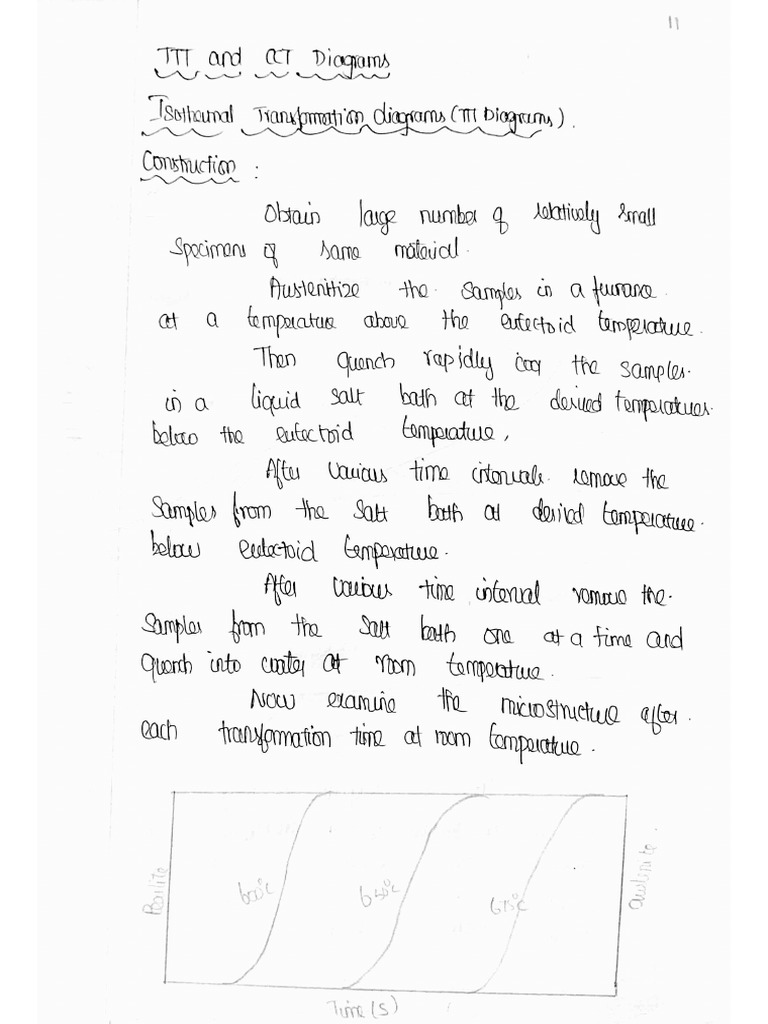 11
TTT and CCT Diagrams
Isothermal Transformation diagrams (TTT Diagrams).
Construction :
Obtain large number of relatively small
Specimens of same material.
Austenitize the samples in a furnace
at a temperature above the eutectoid temperature.
Then quench rapidly the samples.
in a liquid salt bath at the desired temperatures.
below the eutectoid temperature,
After various time intervals remove the
samples from the salt bath at desired temperature.
below eutectoid temperature.
After various time interval remove the.
samples from the salt bath one at a time and
quench into water at room temperature.
Now examine the microstructure after.
each transformation time at room temperature.
Pearlite
600°C
650°C
675°C
Austenite.
Time (S)